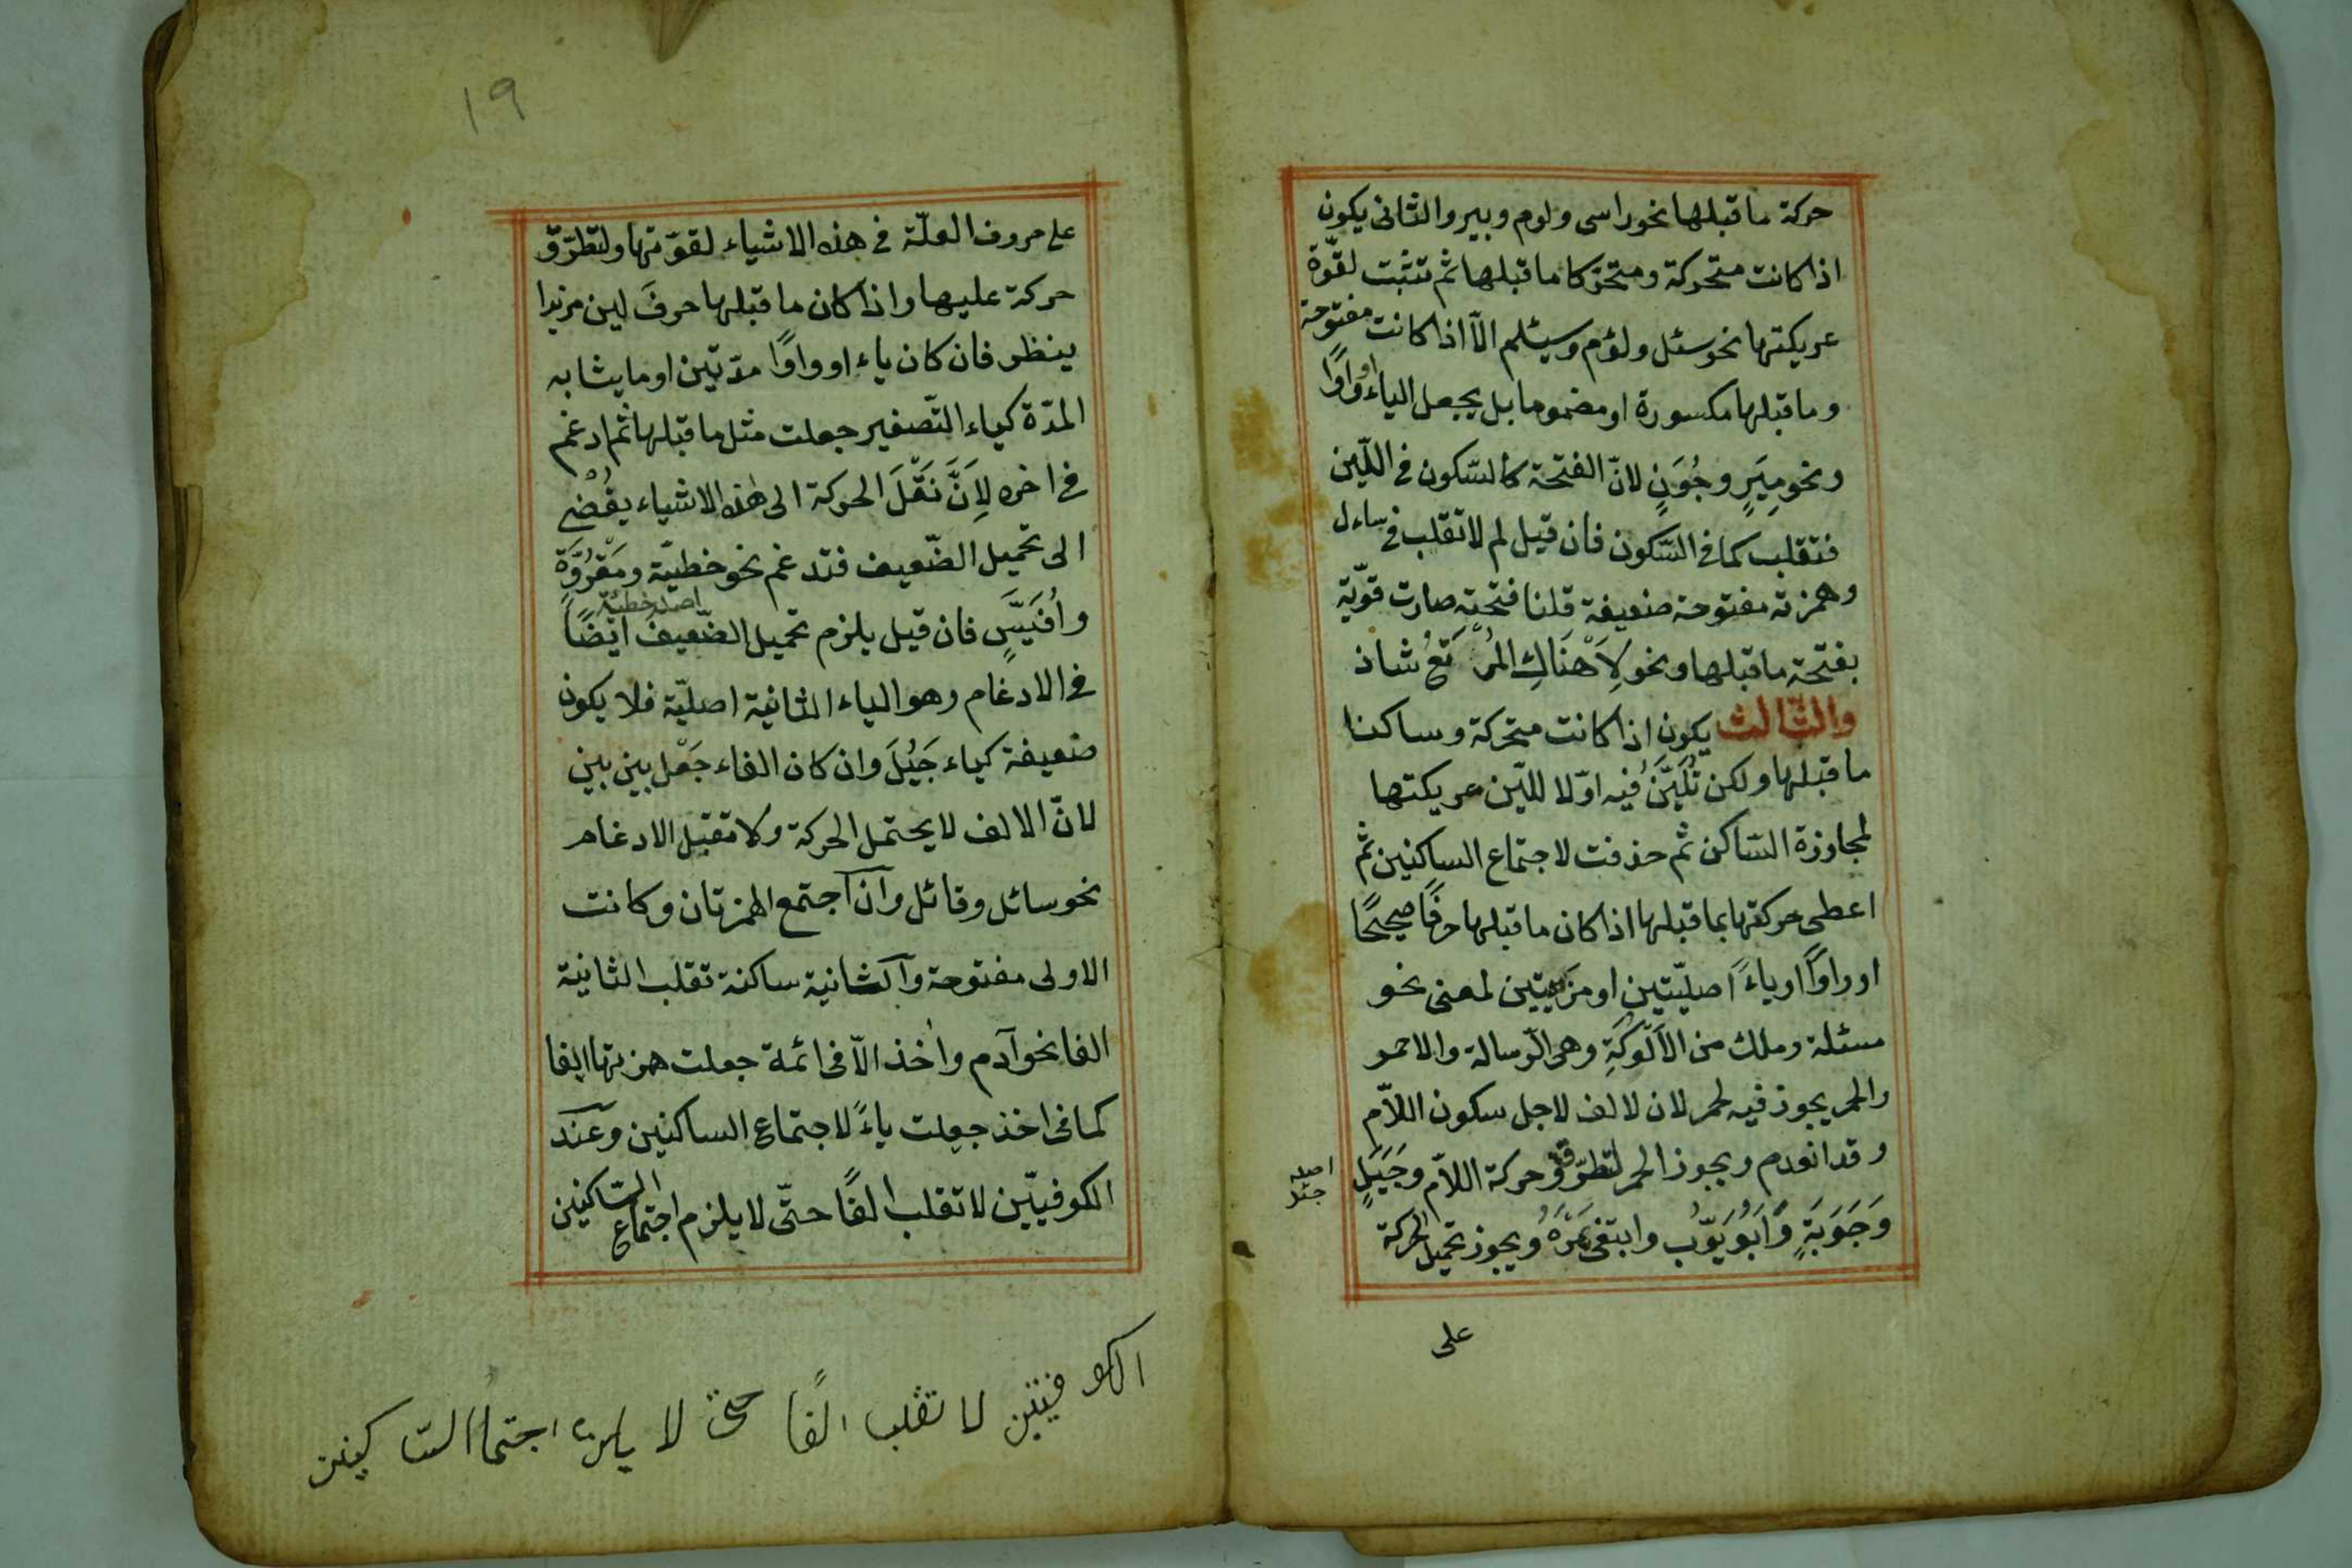 حركة ما قبلها نحو راسى ولوم وبير والثانى يكون
اذا كانت متحركة ومتحركا ما قبلها ثم تثبت لقوّة
عريكتها نحو سئل ولؤم وسيئلم الّا اذا كانت مفتوحة
وما قبلها مكسورة او مضموما بل يجعل الياء او واوًا
ونحو مِيَرٍ وجُوَنٍ لانّ الفتحة كالسّكون فى اللّين
فتقلب كما فى السّكون فان قيل لم لا تقلب فى ساءل
وهمزته مفتوحة ضعيفة قلنا فتحته صارت قوّية
بفتحة ما قبلها ونحو لَا هَنَاكِ المَرْتَعُ شاذ
والثّالث يكون اذا كانت متحركة وساكنا
ما قبلها ولكن تُلَيَّنُ فيه اوّلا لليّن عريكتها
لمجاوزة السّاكن ثم حذفت لاجتماع الساكنين ثمّ
اعطى حركتها بما قبلها اذا كان ما قبلها حرفًا صحيحًا
او واوًا او ياءً اصليّتين او مزيديتين لمعنى نحو
مسئلة وملك من الاَلُوكَةِ وهى الرّسالة والاحمر
والحمر يجوز فيه لحمر لان لالف لاجل سكون اللّام
وقد انعدم ويجوز الحمر لتطرّق حركة اللّام وجَيَلٍ
اصله جئل
وَجَوَبَةٍ وَاَبُوَيّوُب وابتغى مَرَهُ ويجوز تحميل الحركة
على
١٩
على حروف العلّة فى هذه الاشياء لقوّتها ولتطرّق
حركة عليها واذا كان ما قبلها حرفَ لين مزيدا
ينظر فان كان ياء او واوًا مدّتين او ما يشابه
المدّة كياء التّصغير جعلت مثل ما قبلها ثم ادغم
فى اخره لِاَنَّ نَقْلَ الحركة الى هذه الاشياء يفُضْى
الى تحميل الضّعيف فتدغم نحو خطيّة ومَقْرُوَّةٍ
اصله خطيئة
واُفَيّسٍ فان قيل يلزم تحميل الضّعيف ايضًا
فى الادغام وهو الياء الثانية اصليّة فلا يكون
ضعيفة كياء جَيَلَ وان كان الفاء جَعْل بين بين
لانّ الالف لا يحتمل الحركة ولا تقبل الادغام
نحو سائل وقائل وان اجتمع الهمزتان وكانت
الاولى مفتوحة والثانية ساكنة تقلب الثانية
الفا نحو آدم واٰخذ الّا فى ائمة جعلت همزتها الفا
كما فى اخذ جعلت ياءً لاجتماع الساكنين وعند
الكوفيّين لا تقلب الفًا حتّى لا يلزم اجتماع السّاكنين
الكوفيين لا تقلب الفًا حتى لا يلزم اجتماالسّاكينن